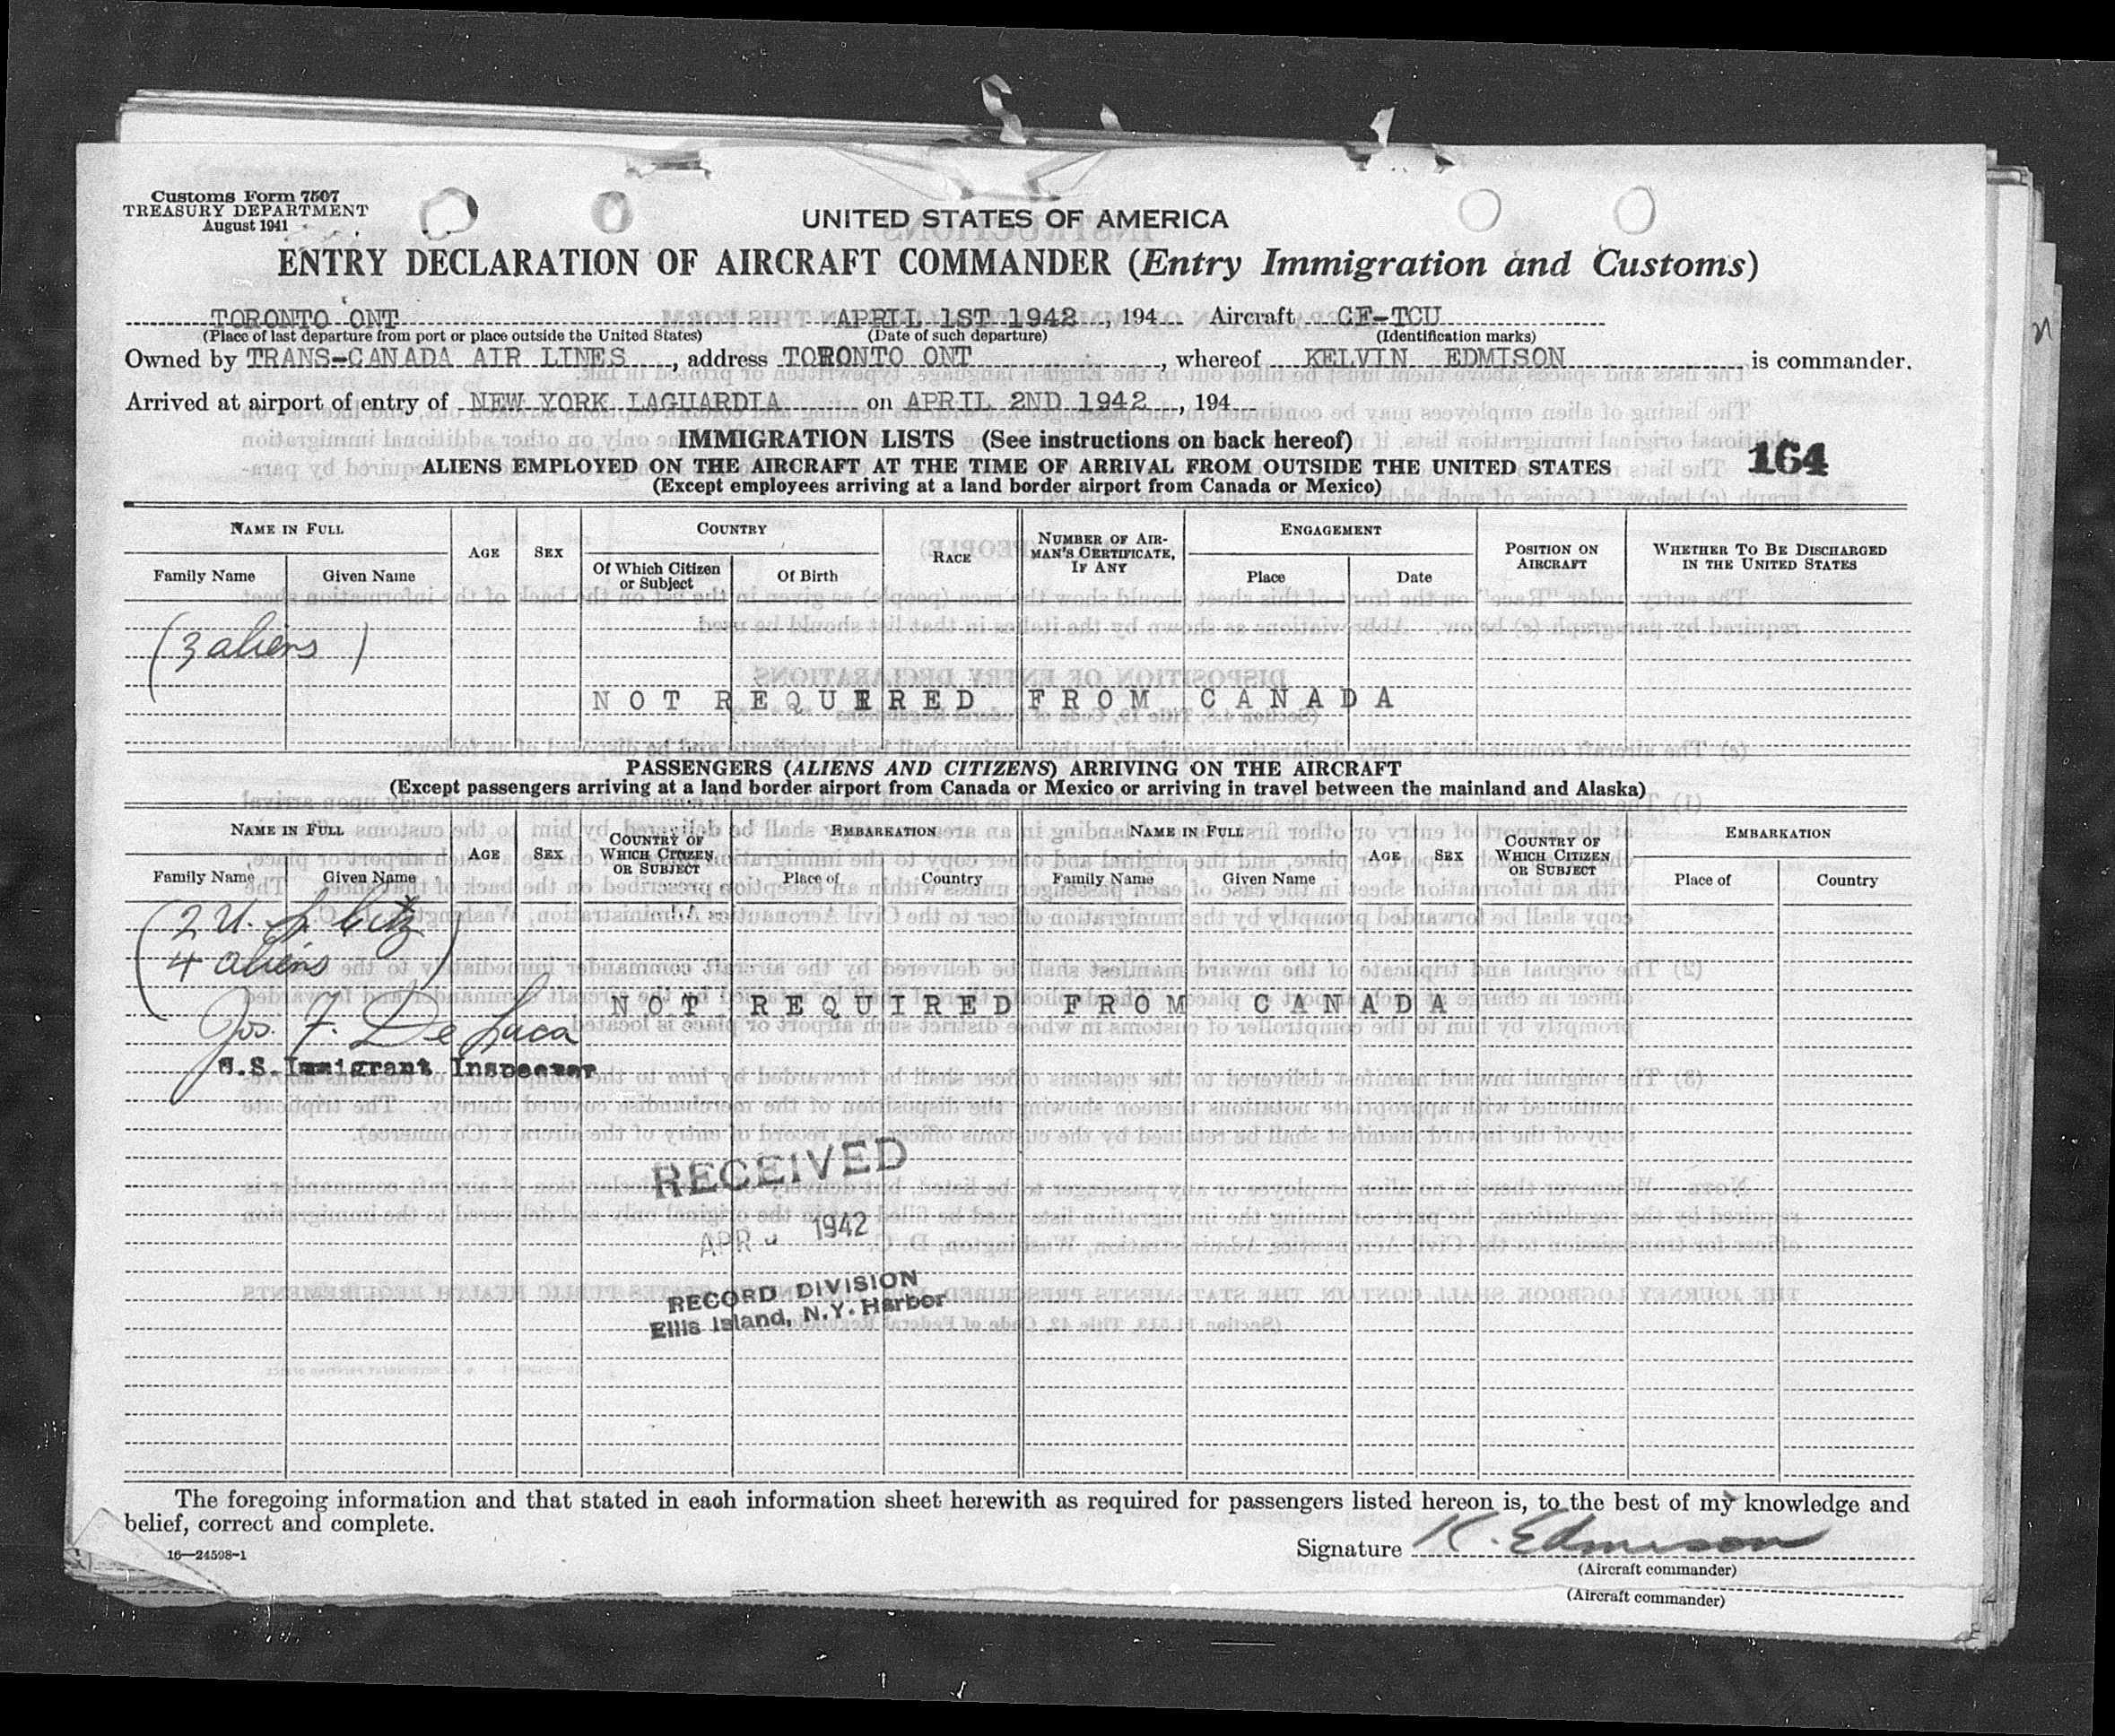 Customs Form 7507
TREASURY DEPARTMENT
August 1941
UNITED STATES OF AMERICA
ENTRY DECLARATION OF AIRCRAFT COMMANDER (Entry Immigration and Customs)
TORONTO ONT APRIL 1ST 1942, 194 Aircraft CF-TCU
(Place of last departure from port or place outside the United States) (Date of such departure) (Identification marks)
Owned by TRANS-CANADA AIR LINES, address TORONTO ONT, whereof KELVIN EDMISON is commander.
Arrived at airport of entry of NEW YORK LAGUARDIA on APRIL 2ND 1942, 194
IMMIGRATION LISTS (See instructions on back hereof)
164
ALIENS EMPLOYED ON THE AIRCRAFT AT THE TIME OF ARRIVAL FROM OUTSIDE THE UNITED STATES
(Except employees arriving at a land border airport from Canada or Mexico)
NAME IN FULL AGE SEX COUNTRY RACE NUMBER OF AIR-MAN'S CERTIFICATE, IF ANY ENGAGEMENT POSITION ON AIRCRAFT WHETHER TO BE DISCHARGED IN THE UNITED STATES
Family Name Given Name Of Which Citizen or Subject Of Birth Place Date
(3 aliens)
NOT REQUIRED FROM CANADA
PASSENGERS (ALIENS AND CITIZENS) ARRIVING ON THE AIRCRAFT
(Except passengers arriving at a land border airport from Canada or Mexico or arriving in travel between the mainland and Alaska)
NAME IN FULL AGE SEX COUNTRY OF WHICH CITIZEN OR SUBJECT EMBARKATION NAME IN FULL AGE SEX COUNTRY OF WHICH CITIZEN OR SUBJECT EMBARKATION
Family Name Given Name Place of Country Family Name Given Name Place of Country
(2 U. S. Citz
4 aliens)
NOT REQUIRED FROM CANADA
Jos. F. De Luca
U.S. Immigrant Inspector
RECEIVED
APR 1942
RECORD DIVISION
Ellis Island, N.Y. Harbor
The foregoing information and that stated in each information sheet herewith as required for passengers listed hereon is, to the best of my knowledge and
belief, correct and complete.
16—24508-1
Signature K. Edmison
(Aircraft commander)
(Aircraft commander)